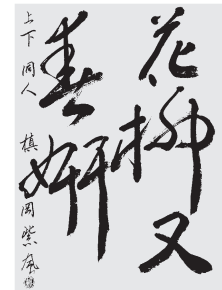 花柳又
春妍
上下同人 槙岡紫風雅